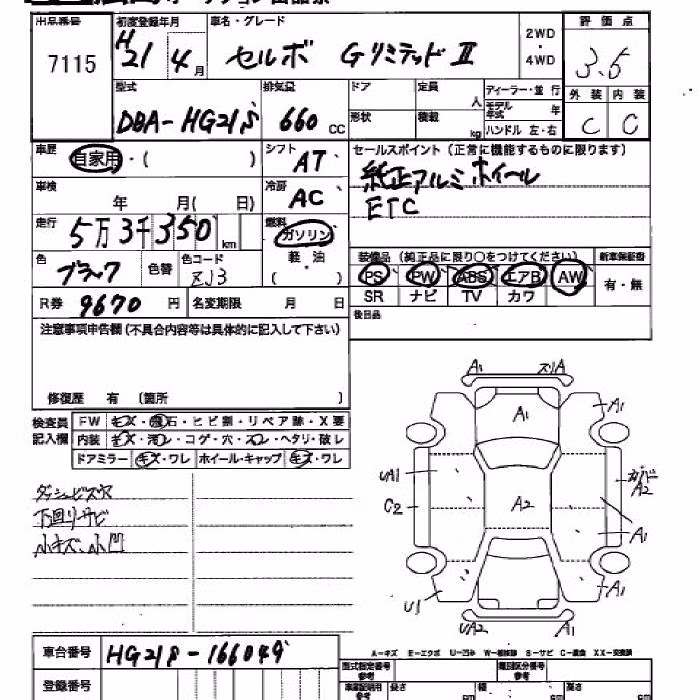 出品番号 初度登録年月 車名・グレード 2WD・4WD 評価点
7115 H21 4月 セルボ GリミテッドⅡ 3.5
型式 排気量 ドア 定員 人 ディーラー・並行 外装 内装
DBA-HG21S 660cc 形状 積載 kg モデル年式 年 C C
ハンドル 左・右
車歴 自家用・( ) シフト AT セールスポイント(正常に機能するものに限ります)
純正アルミホイール
車検 年 月( 日) 冷房 AC ETC
走行 5万3千350km 燃料 ガソリン
軽・油
( )
装備品(純正品に限り○をつけてください) 新車保証書
色 ブラック 色替 色コード ZJ3 PS PW ABS エアB AW 有・無
SR ナビ TV カワ
R券 9670円 名変期限 月 日 後日品
注意事項申告欄(不具合内容等は具体的に記入して下さい)
修復歴 有 (箇所 )
検査員記入欄 FW キズ・飛石・ヒビ割・リペア跡・X要
内装 キズ・汚レ・コゲ・穴・スレ・ヘタリ・破レ
ドアミラー キズ・ワレ ホイール・キャップ キズ・ワレ
ダッシュビス穴
下回りサビ
小キズ、小凹
A1 スリA
A1 A1
UA1 A2
C2 A2
A1
U1 A1
UA2 A1
A-キズ E-エクボ U-凹み W-補修跡 S-サビ C-腐食 XX-交換済
車台番号 HG21S-166049
登録番号
型式指定番号 参考 類別区分番号 参考
長さ cm 幅 cm 高 cm